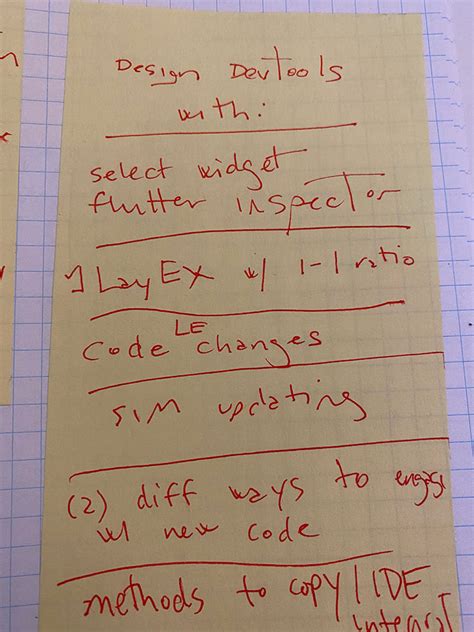 Design DevTools
with:
select widget
flutter inspector
LayEX w/ 1-1 ratio
Code LE changes
SIM updating
(2) diff ways to engage
w/ new code
methods to copy/IDE